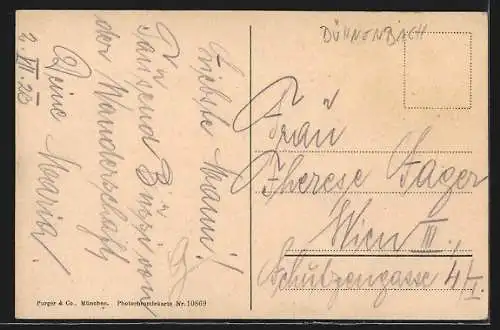 DÜRRENBACH
Liebste Mami!
Tausend Bussi von
der Wanderschaft
Deine Maria!
2. VII. 23
Frau
Therese Jager
Wien III
Schützengasse 4/I.
Purger & Co., München. Photochromiekarte Nr. 10869